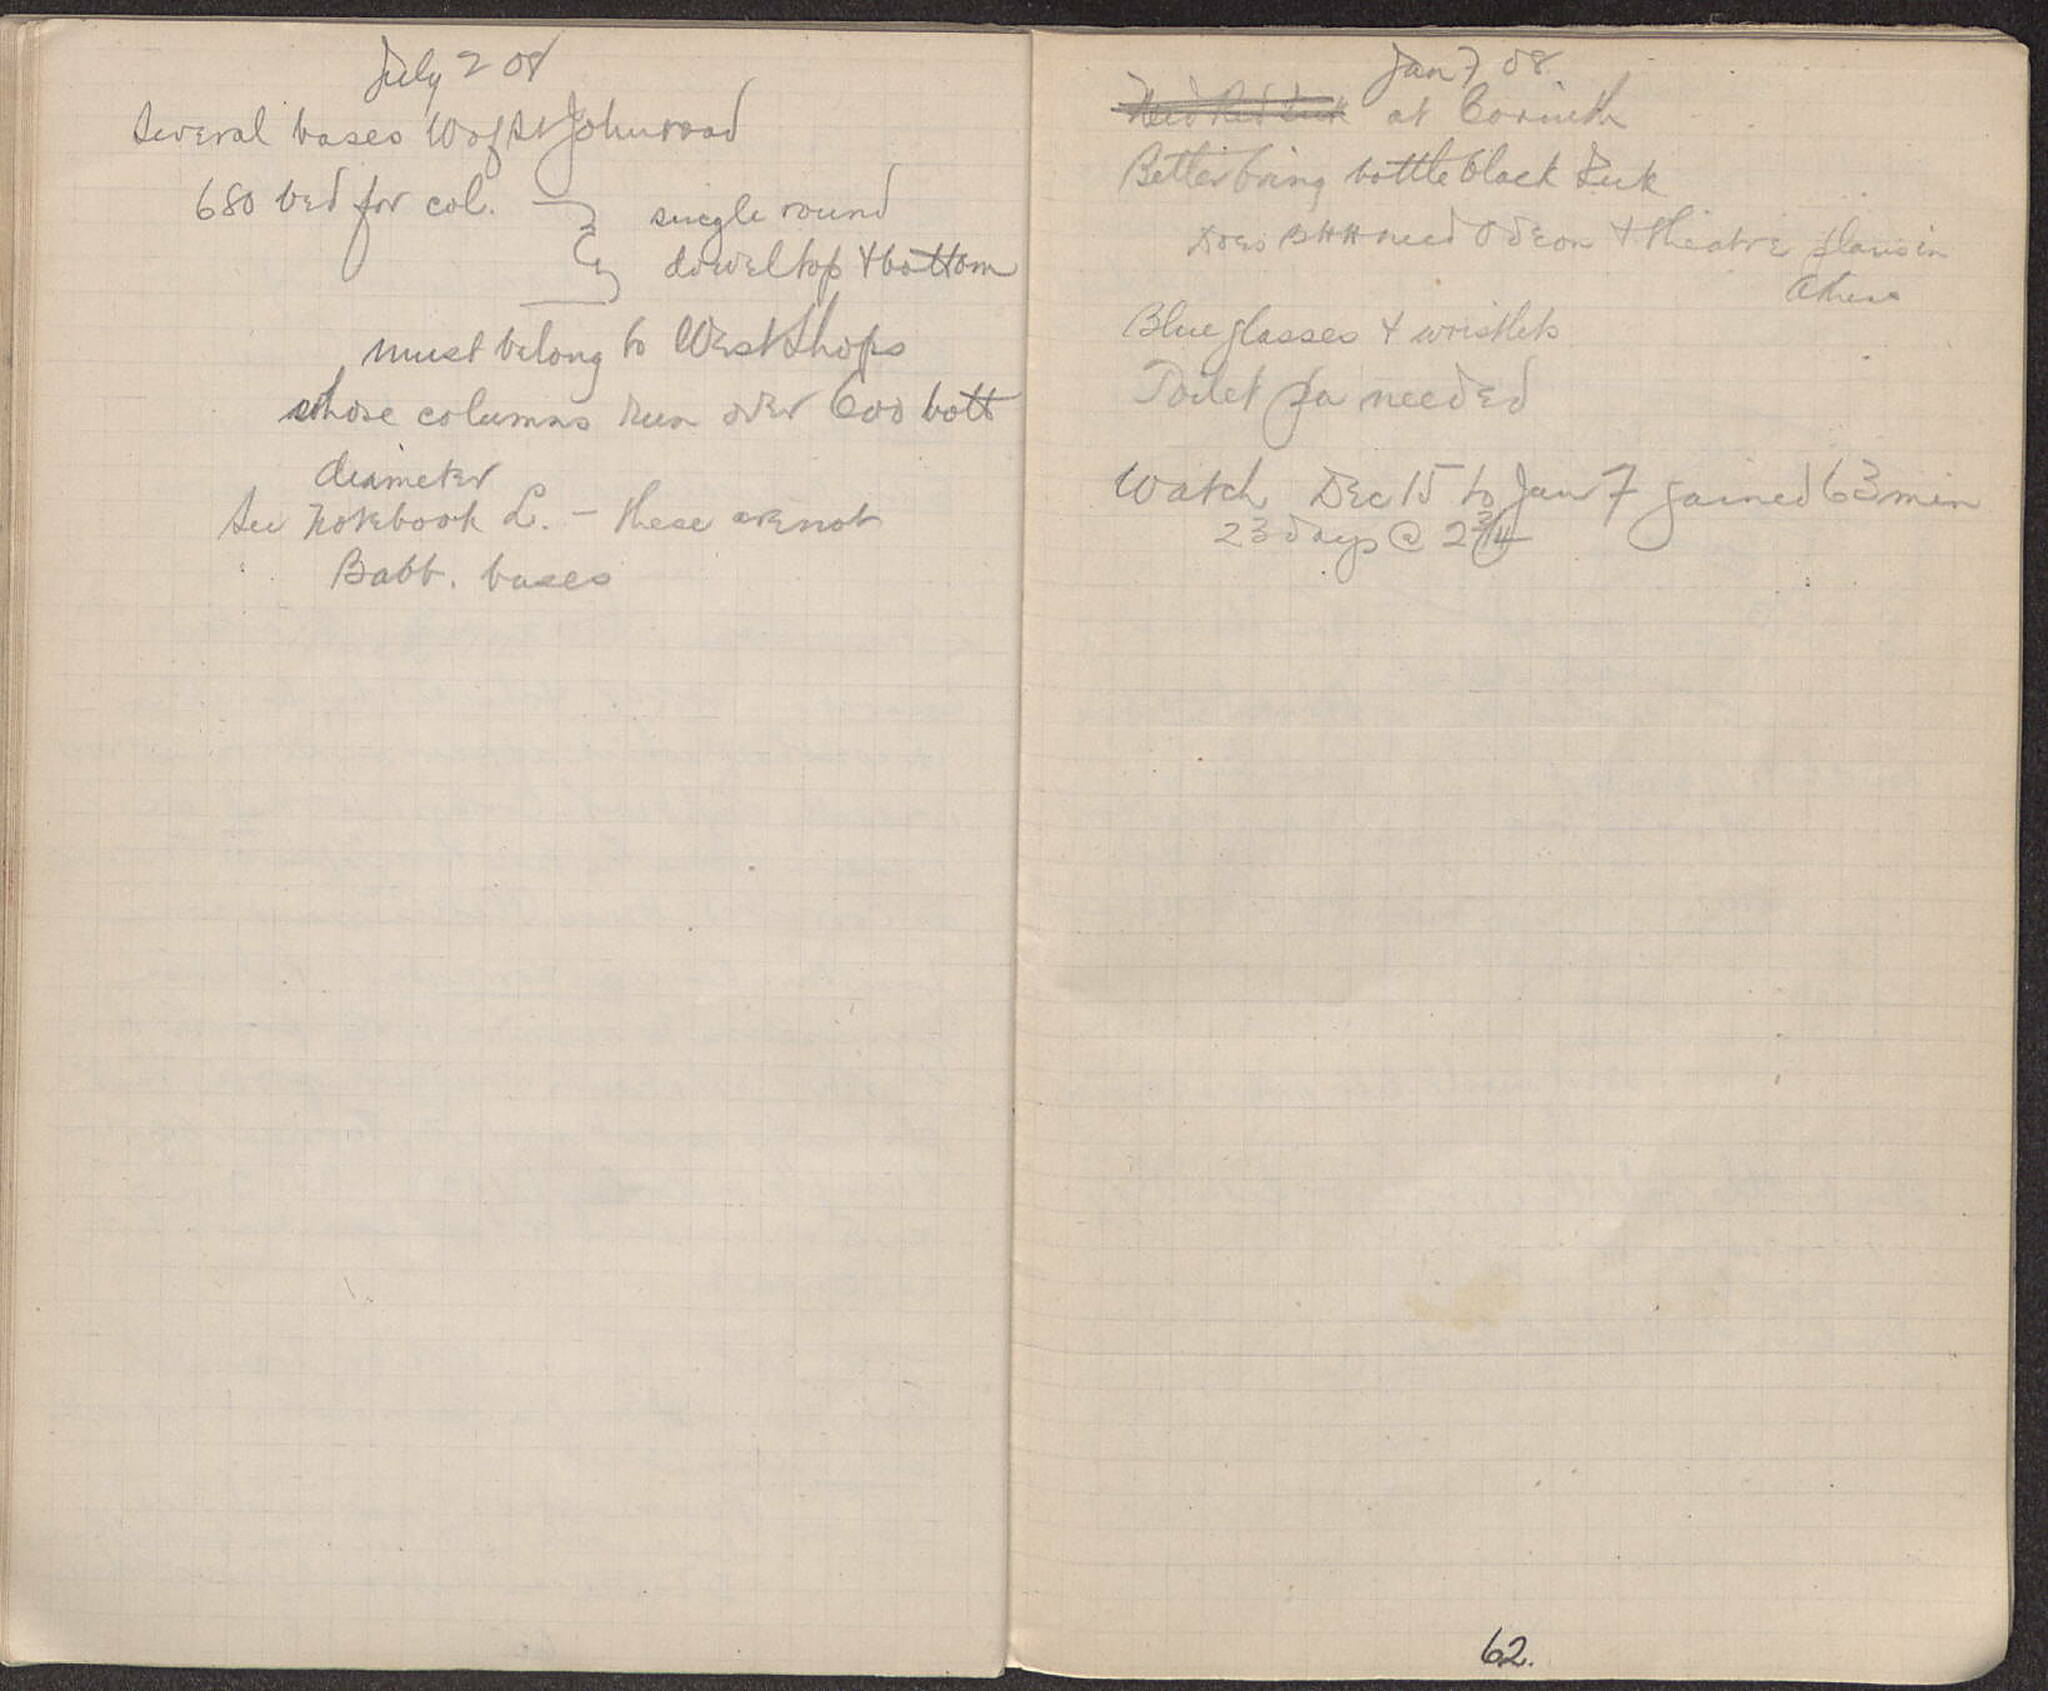 July 2 08
Several bases W of St John road
680 bed for col.
single round
dowel top + bottom
must belong to West Shops
whose columns run over 600 bott
diameter
See Notebook L. - these are not
Babb. bases
Jan 7 08
Need Red Ink at Corinth
Better bring bottle black Ink
Does BHH need Odeon + theatre plans in
Athens
Blue glasses + wristlets
Toilet pa needed
Watch Dec 15 to Jan 7 gained 63 min
23 days @ 2 3/4
62.